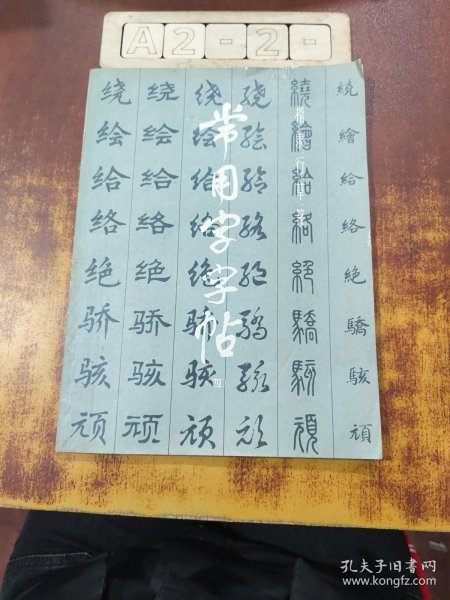 A2-2-
常用字字帖
四
楷隶行草篆
绕 绕 绕 绕 繞 繞
绘 绘 绘 绘 繪 繪
给 给 给 给 給 給
络 络 络 络 絡 絡
绝 绝 绝 绝 絕 絕
骄 骄 骄 骄 驕 驕
骇 骇 骇 骇 駭 駭
顽 顽 顽 顽 頑 頑
孔夫子旧书网
www.kongfz.com